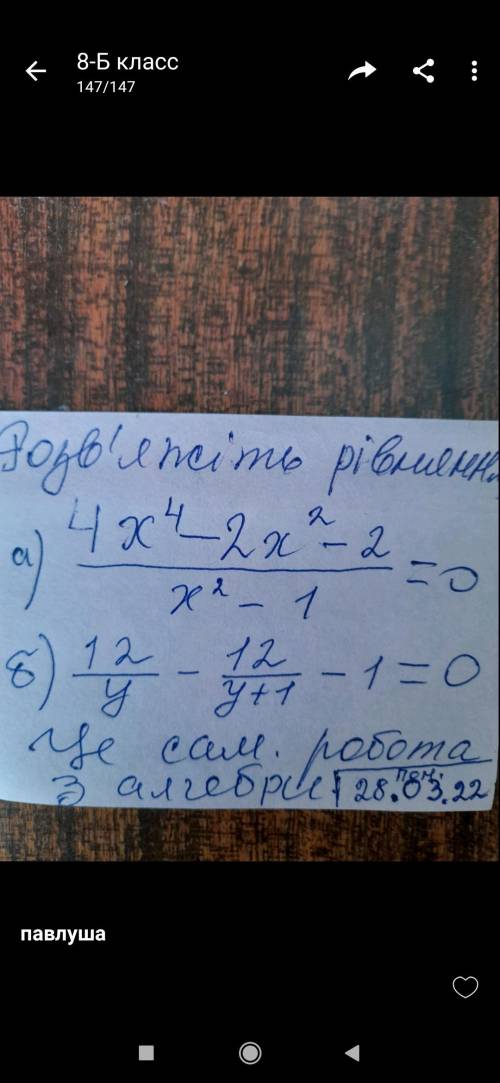 8-Б класс
147/147
Розв'яжіть рівняння
а) \frac{4x^4-2x^2-2}{x^2-1}=0
б) \frac{12}{y}-\frac{12}{y+1}-1=0
Це сам. робота
з алгебри пон. 28.03.22
павлуша